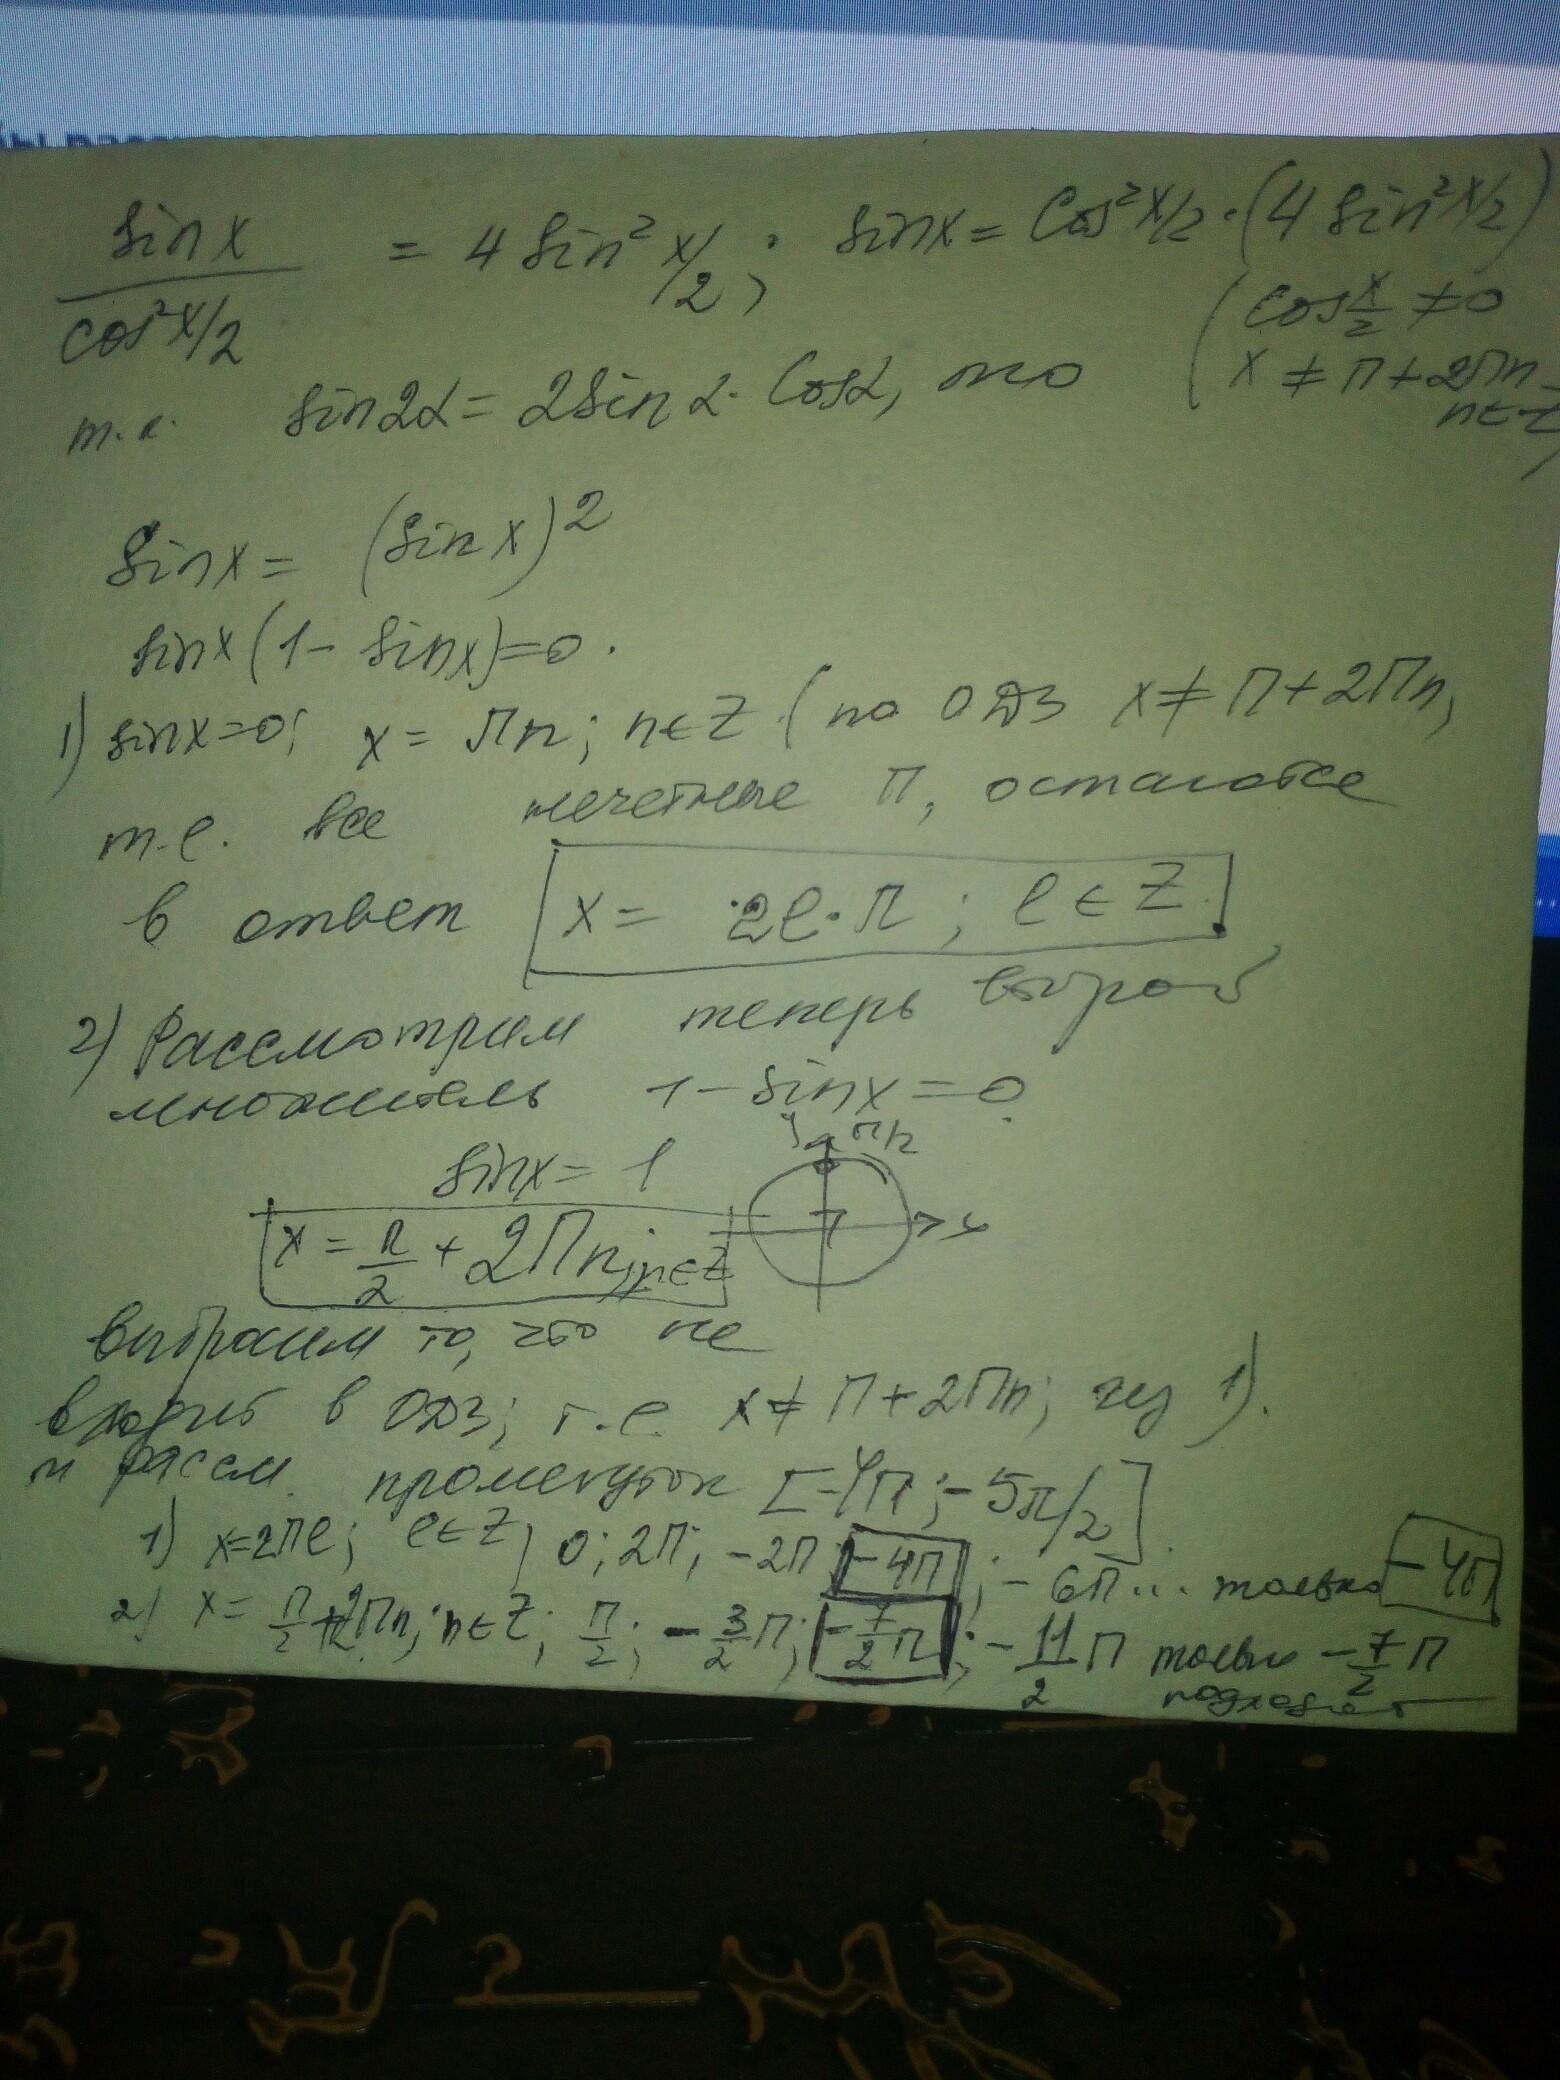 sinx / cos²x/2 = 4 sin² x/2 ; sinx = Cos²x/2 · (4 sin²x/2)
(cos x/2 ≠ 0
x ≠ П + 2Пn
n ∈ Z)
т.к. sin2α = 2sin α · Cosα, то
sinx = (sin x)²
sinx (1 - sinx) = 0.
1) sinx = 0; x = Пn; n ∈ Z (по ОДЗ x ≠ П + 2Пn,
т.е. все нечетные П, остаются
в ответ x = 2l·П ; l ∈ Z.
2) Рассмотрим теперь второй
множитель 1 - sinx = 0
y П/2
sinx = 1
x = П/2 + 2Пn; n ∈ Z
x
выбросим то, что не
входит в ОДЗ; т.е. x ≠ П + 2Пn; из 1).
и рассм. промежуток [-4П ; - 5П/2]
1) x = 2Пl; l ∈ Z, 0; 2П; -2П -4П ; - 6П... только -4П
2) x = П/2 + 2Пn; n ∈ Z; П/2; - 3/2 П; - 7/2 П ; - 11/2 П только - 7/2 П
подходит